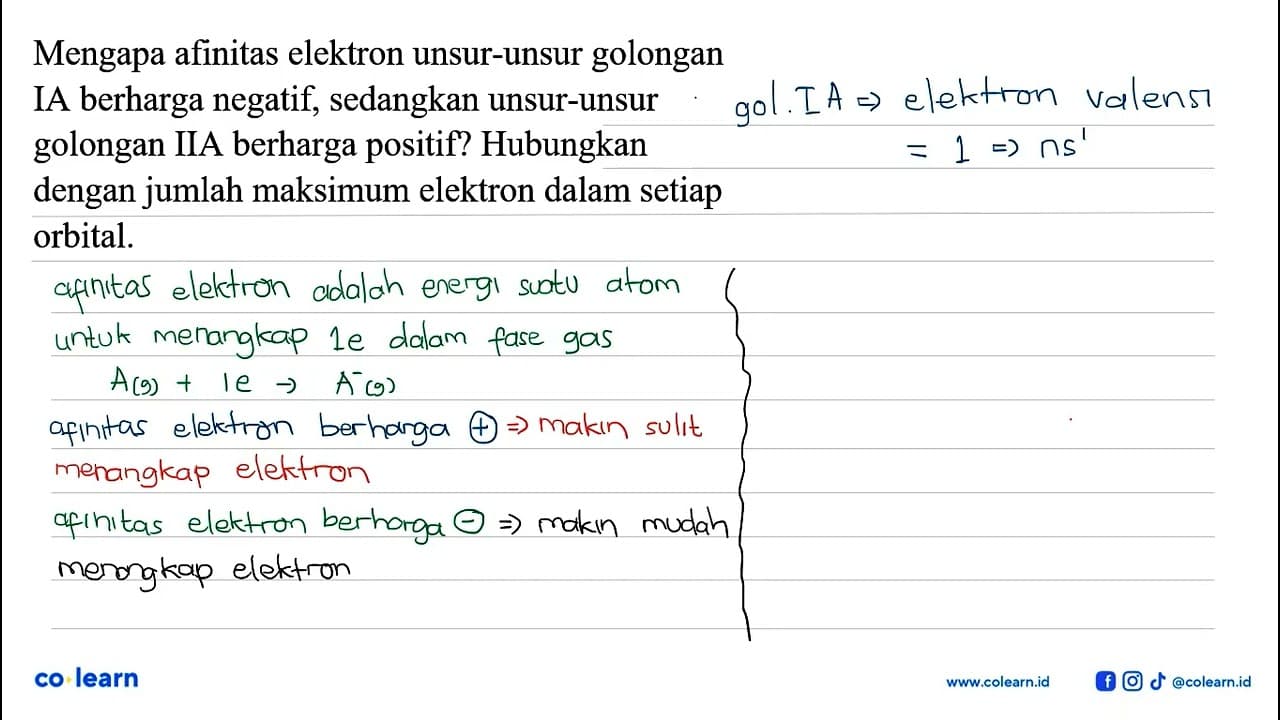 Mengapa afinitas elektron unsur-unsur golongan
IA berharga negatif, sedangkan unsur-unsur
golongan IIA berharga positif? Hubungkan
dengan jumlah maksimum elektron dalam setiap
orbital.
gol. IA ⇒ elektron valensi
= 1 ⇒ ns¹
afinitas elektron adalah energi suatu atom
untuk menangkap 1e dalam fase gas
A(g) + 1e → A⁻(g)
afinitas elektron berharga ⊕ ⇒ makin sulit
menangkap elektron
afinitas elektron berharga ⊖ ⇒ makin mudah
menangkap elektron
co learn
www.colearn.id
@colearn.id